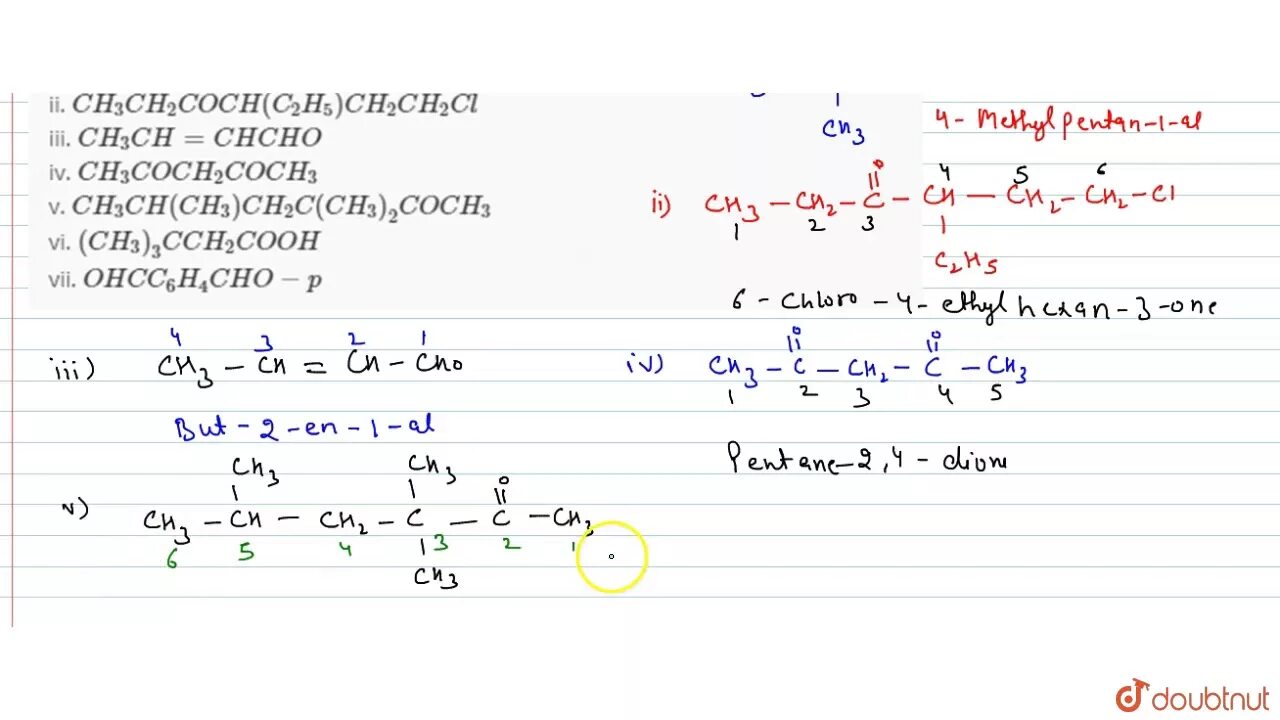 ii. CH₃CH₂COCH(C₂H₅)CH₂CH₂Cl
iii. CH₃CH = CHCHO
iv. CH₃COCH₂COCH₃
v. CH₃CH(CH₃)CH₂C(CH₃)₂COCH₃
vi. (CH₃)₃CCH₂COOH
vii. OHCC₆H₄CHO − p
CH₃
4- Methylpentan-1-al
O 4 5 6
ii) CH₃ − CH₂ − C − CH − CH₂ − CH₂ − Cl
1 2 3
C₂H₅
6 - Chloro - 4 - ethyl hexan - 3 - one
4 3 2 1
iii) CH₃ − CH = CH − CHO
But - 2 - en - 1 - al
O O
iv) CH₃ − C − CH₂ − C − CH₃
1 2 3 4 5
Pentane - 2, 4 - dion
CH₃ CH₃ O
v) CH₃ − CH − CH₂ − C − C − CH₃
6 5 4 3 2 1
CH₃
doubtnut